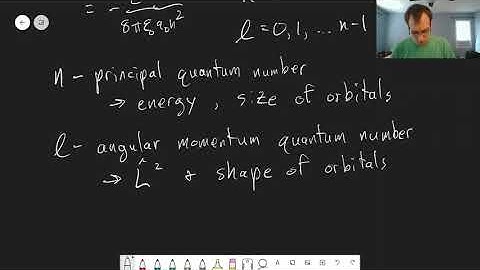 = - 
8πε₀a₀n²
l = 0, 1, ... n-1
n - principal quantum number
→ energy, size of orbitals
l - angular momentum quantum number
→ L̂² & shape of orbitals